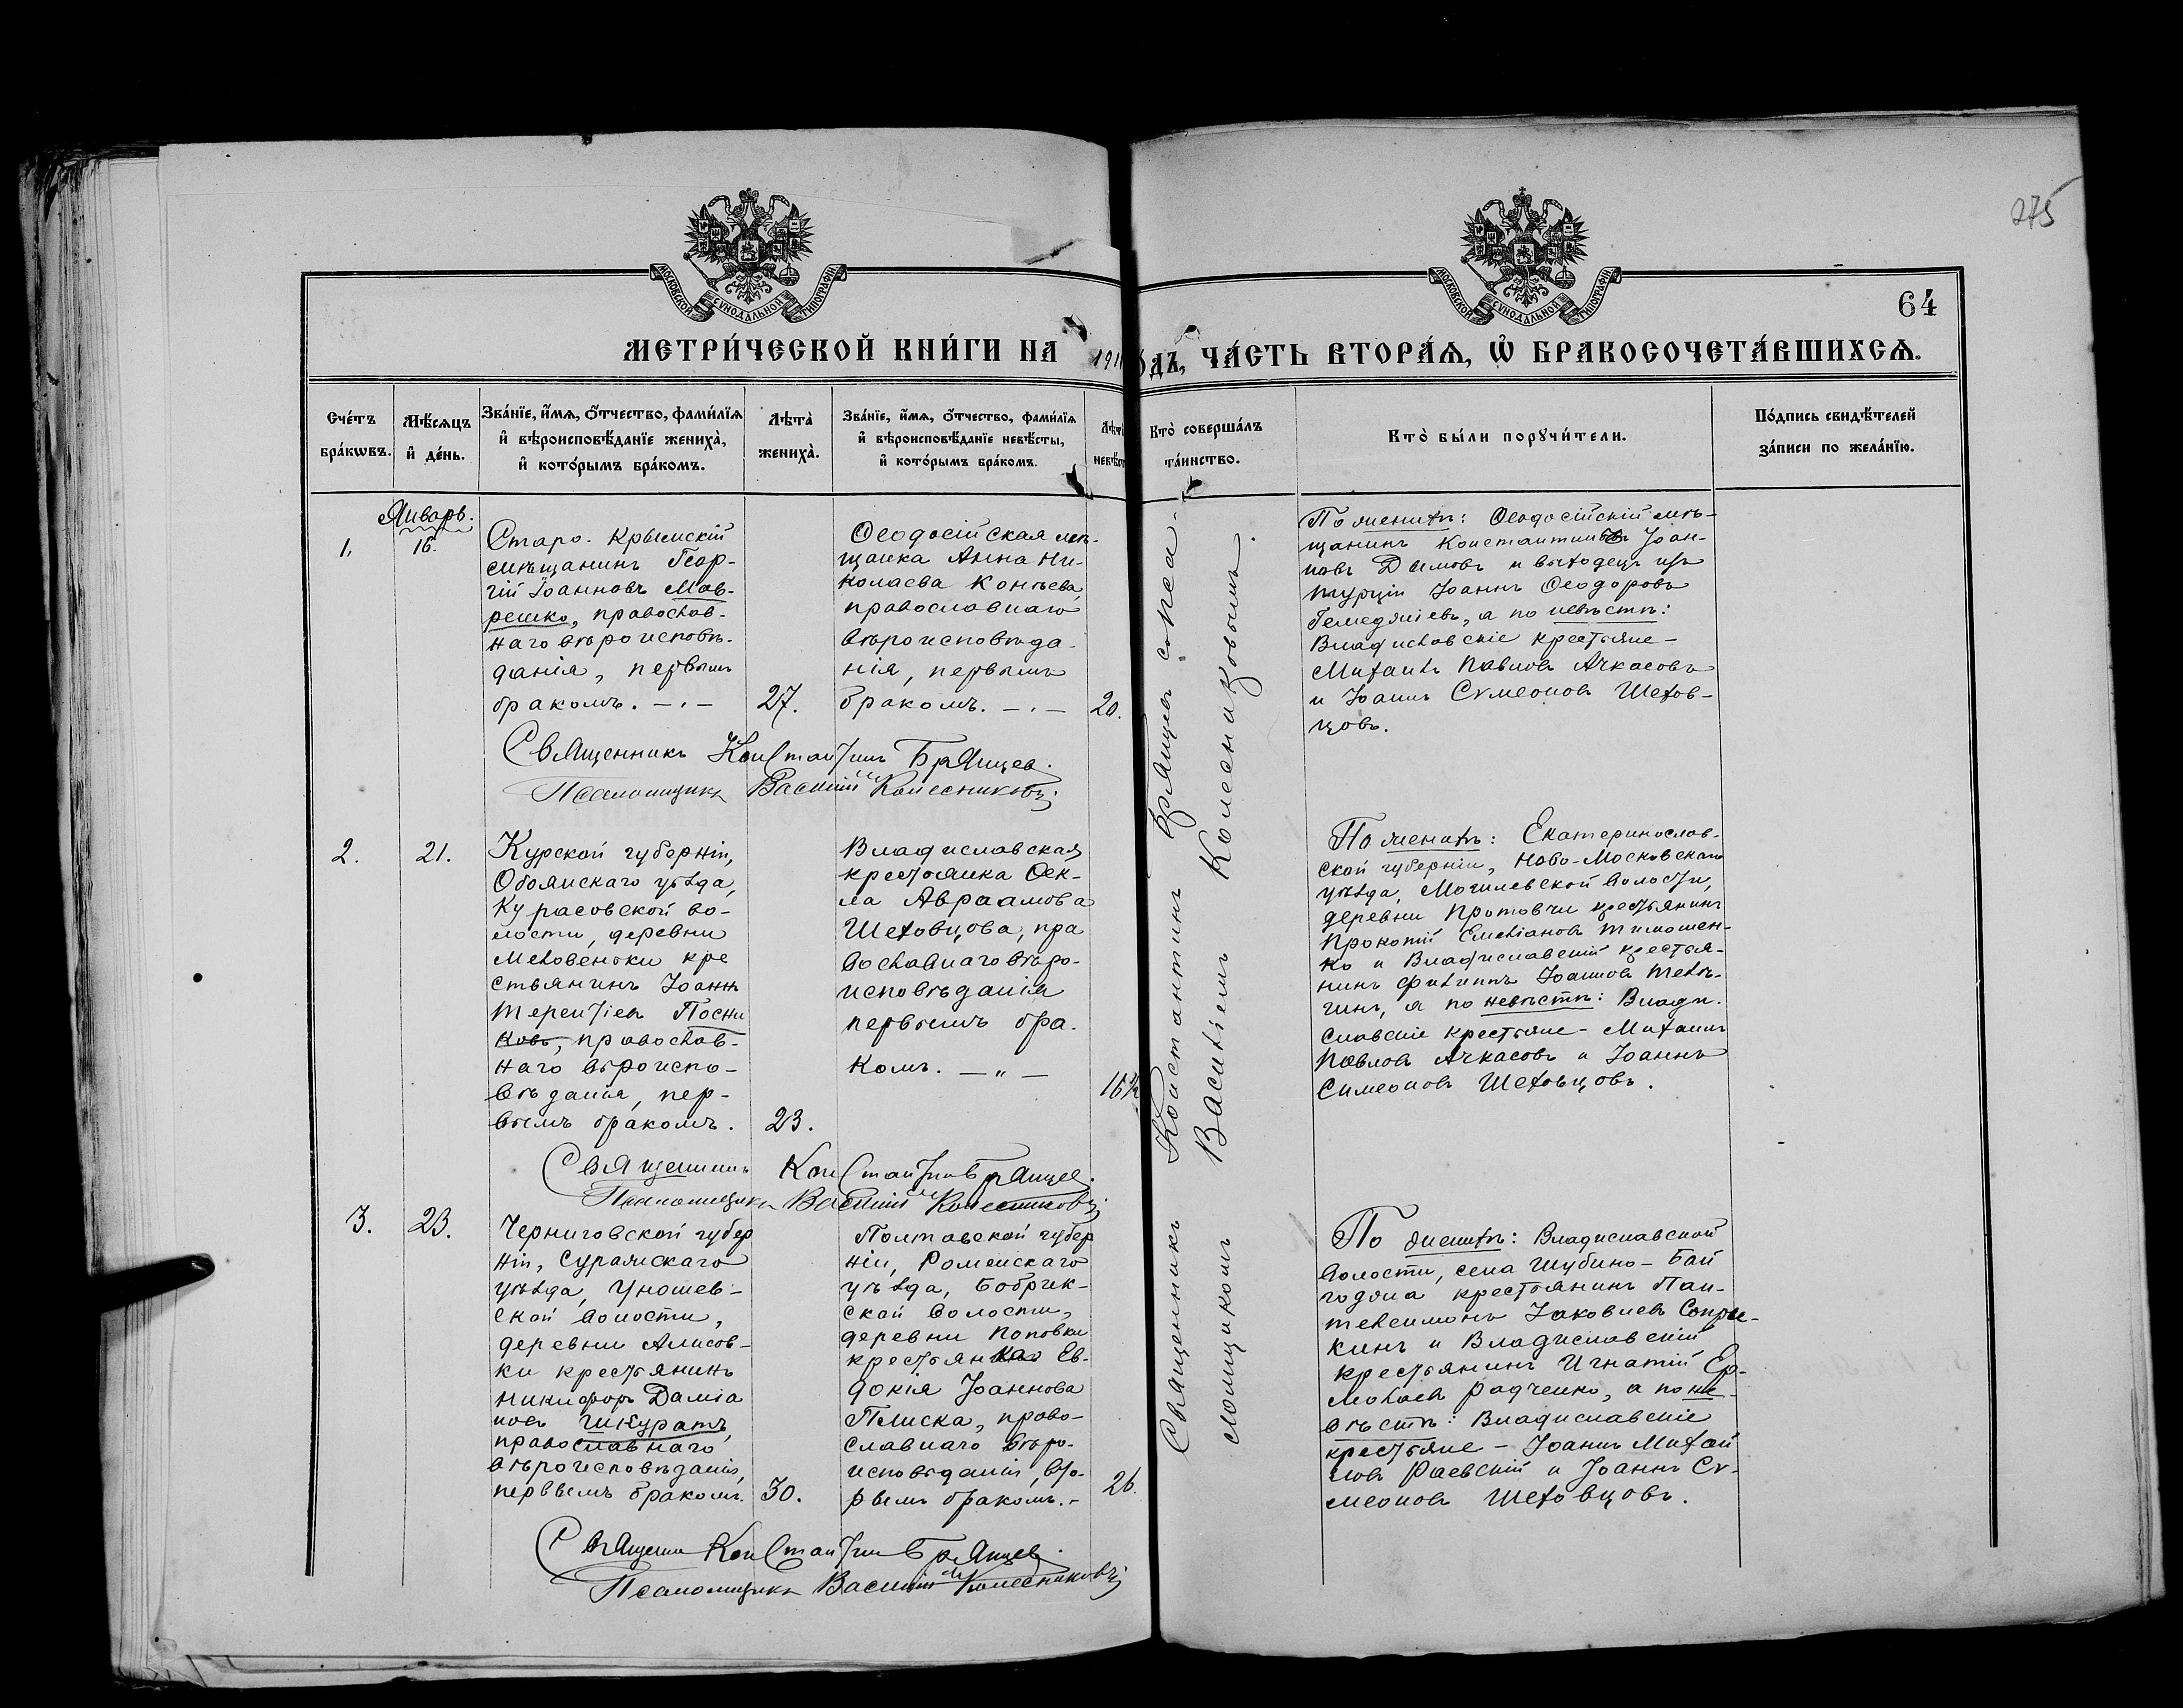 275
МОСКОВСКОЙ СѴНОДАЛЬНОЙ ТИПОГРАФІИ
МОСКОВСКОЙ СѴНОДАЛЬНОЙ ТИПОГРАФІИ
64
МЕТРИ́ЧЕСКОЙ КНИ́ГИ НА 191 ОДЪ, ЧА́СТЬ ВТОРА́Я, Ѡ҆ БРАКОСОЧЕТА́ВШИХСЯ.
Сче́тъ бра́кѡвъ.
Мѣ́сяцъ и҆ де́нь.
Зва́нїе, и҆́мя, ѻ҆́тчество, фами́лїя и҆ вѣроисповѣ́данїе жениха̀, и҆ кото́рымъ бра́комъ.
Лѣта̀ жениха̀.
Зва́нїе, и҆́мя, ѻ҆́тчество, фами́лїя и҆ вѣроисповѣ́данїе невѣ́сты, и҆ кото́рымъ бра́комъ.
Лѣта̀ невѣ́ст
Кто̀ соверша́лъ та́инство.
Кто̀ бы́ли порꙋчи́тели.
По́дпись свидѣ́телей за́писи по жела́нїю.
Январь.
1.
16.
Старо-Крымскій
мѣщанинъ Геор-
гій Іоанновъ Мав-
решко, православ-
наго вѣроисповѣ-
данія, первымъ
бракомъ. —.—
27.
Ѳеодосійская мѣ-
щанка Анна Ни-
колаева Коньева,
православнаго
вѣроисповѣда-
нія, первымъ
бракомъ. —.—
20.
По женихѣ: Ѳеодосійскій мѣ-
щанинъ Константинъ Іоан-
новъ Димовъ и выходецъ изъ
Турціи Іоаннъ Ѳеодоровъ
а по невѣстѣ:
Владиславскіе крестьяне —
Михаилъ Павловъ Ачкасовъ
и Іоаннъ Сѵмеоновъ Шехов-
цовъ.
Священникъ Константинъ Брянцев.
Псаломщикъ Василій Колесниковъ
2.
21.
Курской губерніи,
Обоянскаго уѣзда,
Курасовской во-
лости, деревни
Меловеньки кре
стьянинъ Іоаннъ
Терентіевъ Посни
ковъ, православ-
наго вѣроиспо-
вѣданія, пер-
вымъ бракомъ.
23.
Владиславская
крестьянка Ѳек-
ла Авраамова
Шеховцова, пра
вославнаго вѣро-
исповѣданія
первымъ бра-
комъ. — „ —
16½
По женихѣ: Екатеринослав-
ской губерніи, Ново-Московскаго
уѣзда, Могилевской волости,
деревни Протовчи крестьянинъ
Прокопій Емеліановъ Тимошен-
ко и Владиславскій крестья-
нинъ Филиппъ Іоанновъ Телѣ-
гинъ, а по невѣстѣ: Влади-
славскіе крестьяне — Михаилъ
Павловъ Ачкасовъ и Іоаннъ
Симеоновъ Шеховцовъ.
Священникъ Константинъ Брянцев.
Псаломщикъ Василій Колесниковъ
3.
23.
Черниговской губер
ніи, Суражскаго
уѣзда, Уношев-
ской волости,
деревни Алисов-
ки крестьянинъ
Никифоръ Даміа
новъ Шкуратъ,
православнаго
вѣроисповѣданія,
первымъ бракомъ.
30.
Полтавской губер
ніи, Роменскаго
уѣзда, Бобрик-
ской волости,
деревни Поповки
крестьянка Ев-
докія Іоаннова
Плиска, право-
славнаго вѣро-
исповѣданія, вто-
рымъ бракомъ. -
26.
По женихѣ: Владиславской
волости, села Шубино-Бай
годжа крестьянинъ Пан-
телеимонъ Іаковлевъ Сопры-
кинъ и Владиславскій
крестьянинъ Игнатій Ер-
молаевъ Радченко, а по не-
вѣстѣ: Владиславскіе
крестьяне — Іоаннъ Михай
ловъ Раевскій и Іоаннъ Сѵ-
меоновъ Шеховцовъ.
Священникъ Константинъ Брянцев.
Псаломщикъ Василій Колесниковъ
Священникъ Константинъ Брянцевъ со пса-
ломщикомъ Василіемъ Колесниковымъ.